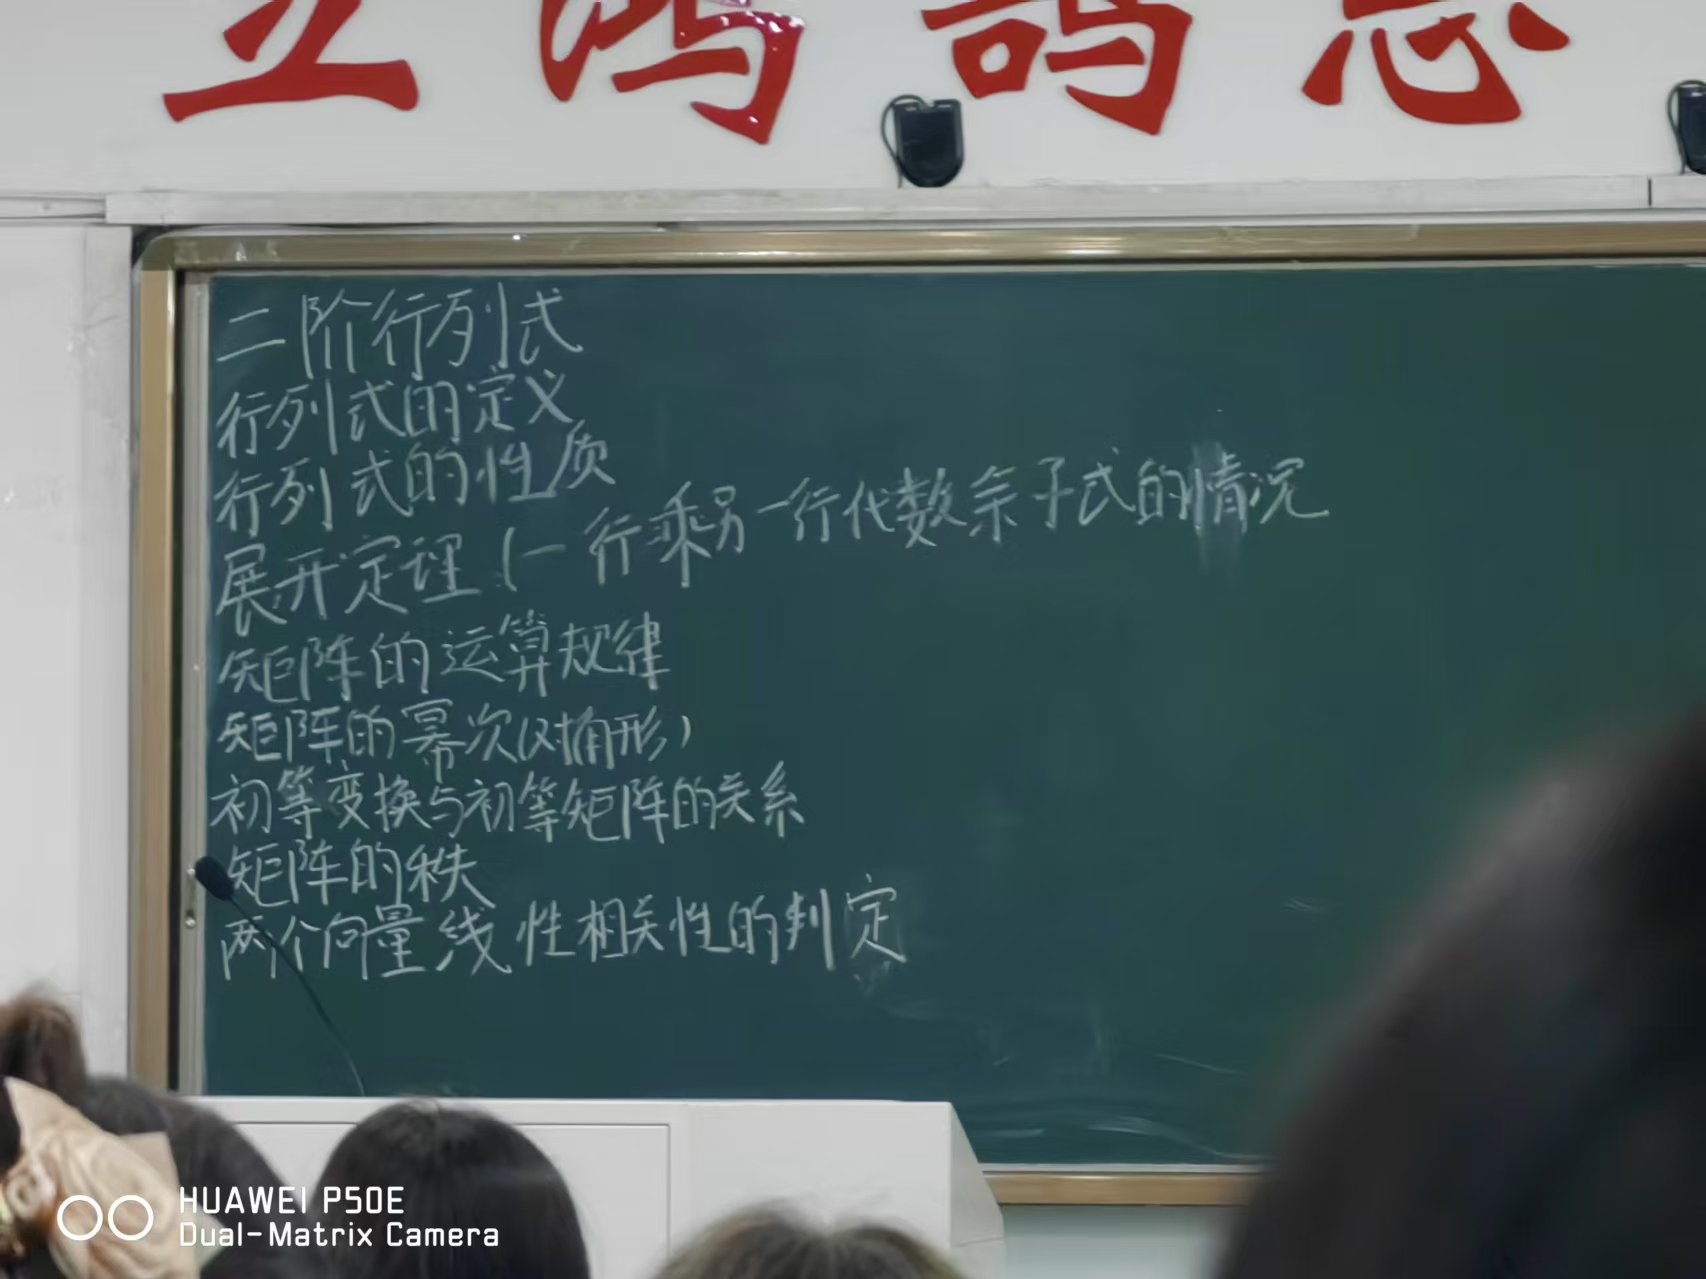 立鸿鹄志
二阶行列式
行列式的定义
行列式的性质
展开定理(一行乘另一行代数余子式的情况
矩阵的运算规律
矩阵的幂次(对角形)
初等变换与初等矩阵的关系
矩阵的秩
两个向量线性相关性的判定
HUAWEI P50E
Dual-Matrix Camera